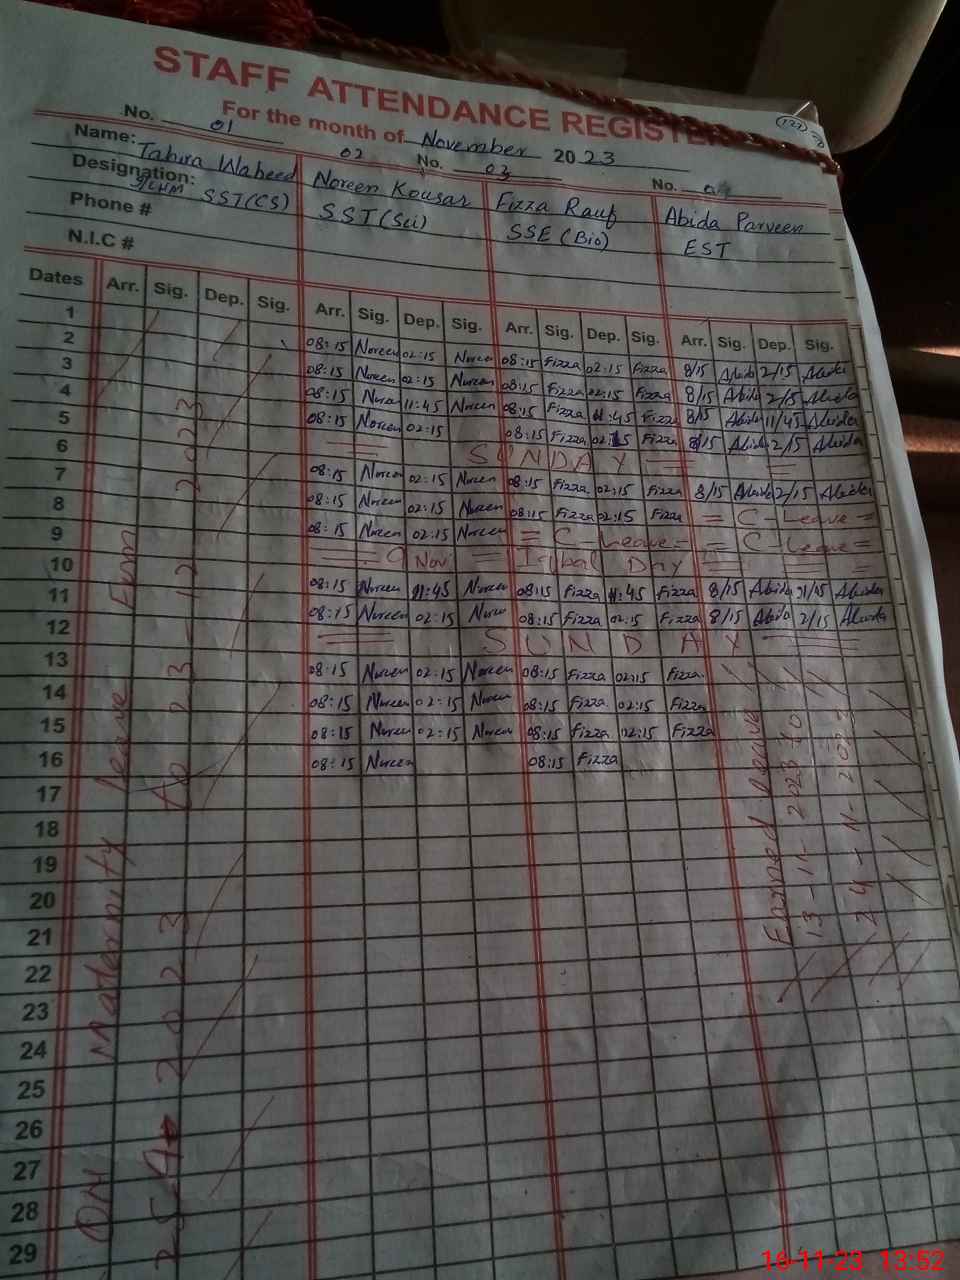 STAFF ATTENDANCE REGISTER
For the month of November 2023
No. 01 02 No. 03 No.
Name: Tahira Waheed Noreen Kousar Fizza Rauf Abida Parveen
Designation: SST(CS) SST(Sci) SSE (Bio) EST
Phone #
N.I.C #
Dates Arr. Sig. Dep. Sig. Arr. Sig. Dep. Sig. Arr. Sig. Dep. Sig. Arr. Sig. Dep. Sig.
1 08:15 Noreen 02:15 Noreen 08:15 Fizza 02:15 Fizza 8/15 Abida 2/15 Abida
2 08:15 Noreen 02:15 Noreen 08:15 Fizza 02:15 Fizza 8/15 Abida 2/15 Abida
3 08:15 Noreen 11:45 Noreen 08:15 Fizza 11:45 Fizza 8/15 Abida 11/45 Abida
4 08:15 Noreen 02:15 08:15 Fizza 02:15 Fizza 8/15 Abida 2/15 Abida
5 SUNDAY
6 08:15 Noreen 02:15 Noreen 08:15 Fizza 02:15 Fizza 8/15 Abida 2/15 Abida
7 08:15 Noreen 02:15 Noreen 08:15 Fizza 02:15 Fizza = C - Leave =
8 08:15 Noreen 02:15 Noreen = C - Leave = = C - Leave =
9 9 Nov = Iqbal Day
10 08:15 Noreen 11:45 Noreen 08:15 Fizza 11:45 Fizza 8/15 Abida 11/45 Abida
11 08:15 Noreen 02:15 Noreen 08:15 Fizza 02:15 Fizza 8/15 Abida 2/15 Abida
12 SUNDAY
13 08:15 Noreen 02:15 Noreen 08:15 Fizza 02:15 Fizza
14 08:15 Noreen 02:15 Noreen 08:15 Fizza 02:15 Fizza
15 08:15 Noreen 02:15 Noreen 08:15 Fizza 02:15 Fizza
16 08:15 Noreen 08:15 Fizza
17
18
19
20
21
22
23
24
25
26
27
28
29
On Maternity leave From
2023 to 2023
Earned Leave
13-11-2023 to
24-11-2023
16-11-23 13:52